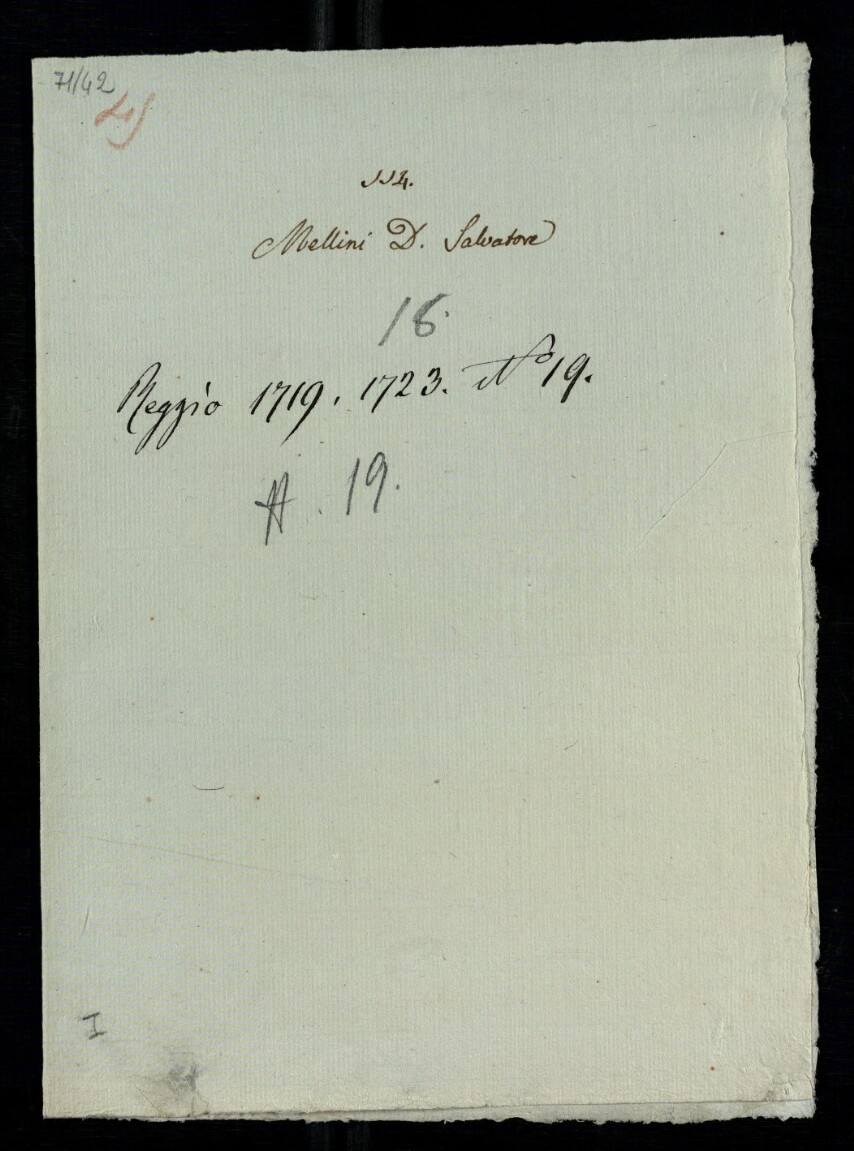 71/42
114.
Mellini D. Salvatore
16.
Reggio 1719. 1723. No 19.
A. 19.
I